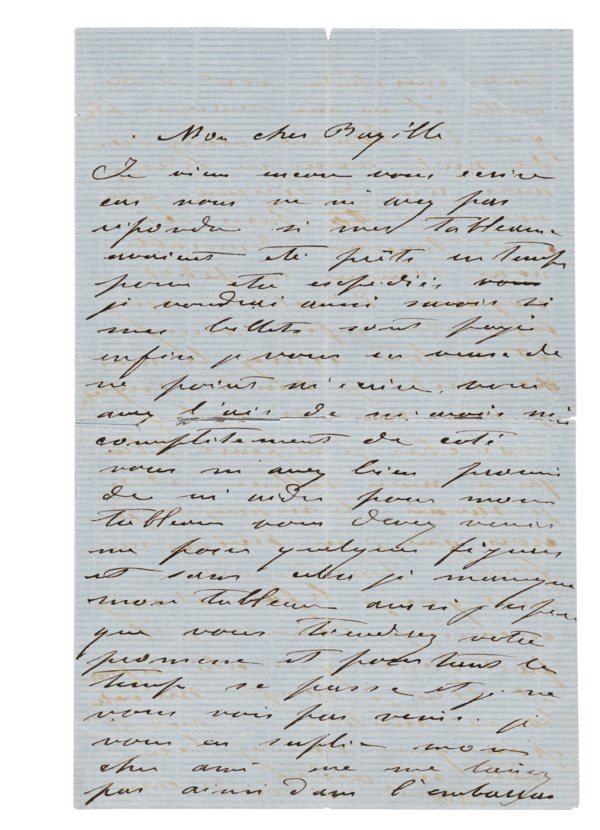 Mon cher Bazille
Je viens encore vous ecrire
car vous ne m'avez pas
repondu si mes tableaux
avaient ete prets en temps
pour etre expedies vous
je voudrai aussi savoir si
mes billets sont payé
enfin je vous en veux de
ne point m'ecrire. vous
avez l'air de m'avoir mis
completement de coté
vous m'avez bien promis
de m'aider pour mon
tableau vous devez venir
me poser quelques figures
et sans cela je manque
mon tableau aussi j'espere
que vous tiendrez votre
promesse et pourtant le
temps se passe et je ne
vous vois pas venir. je
vous en suplie mon
cher ami ne me laissez
pas ainsi dans l'embarras